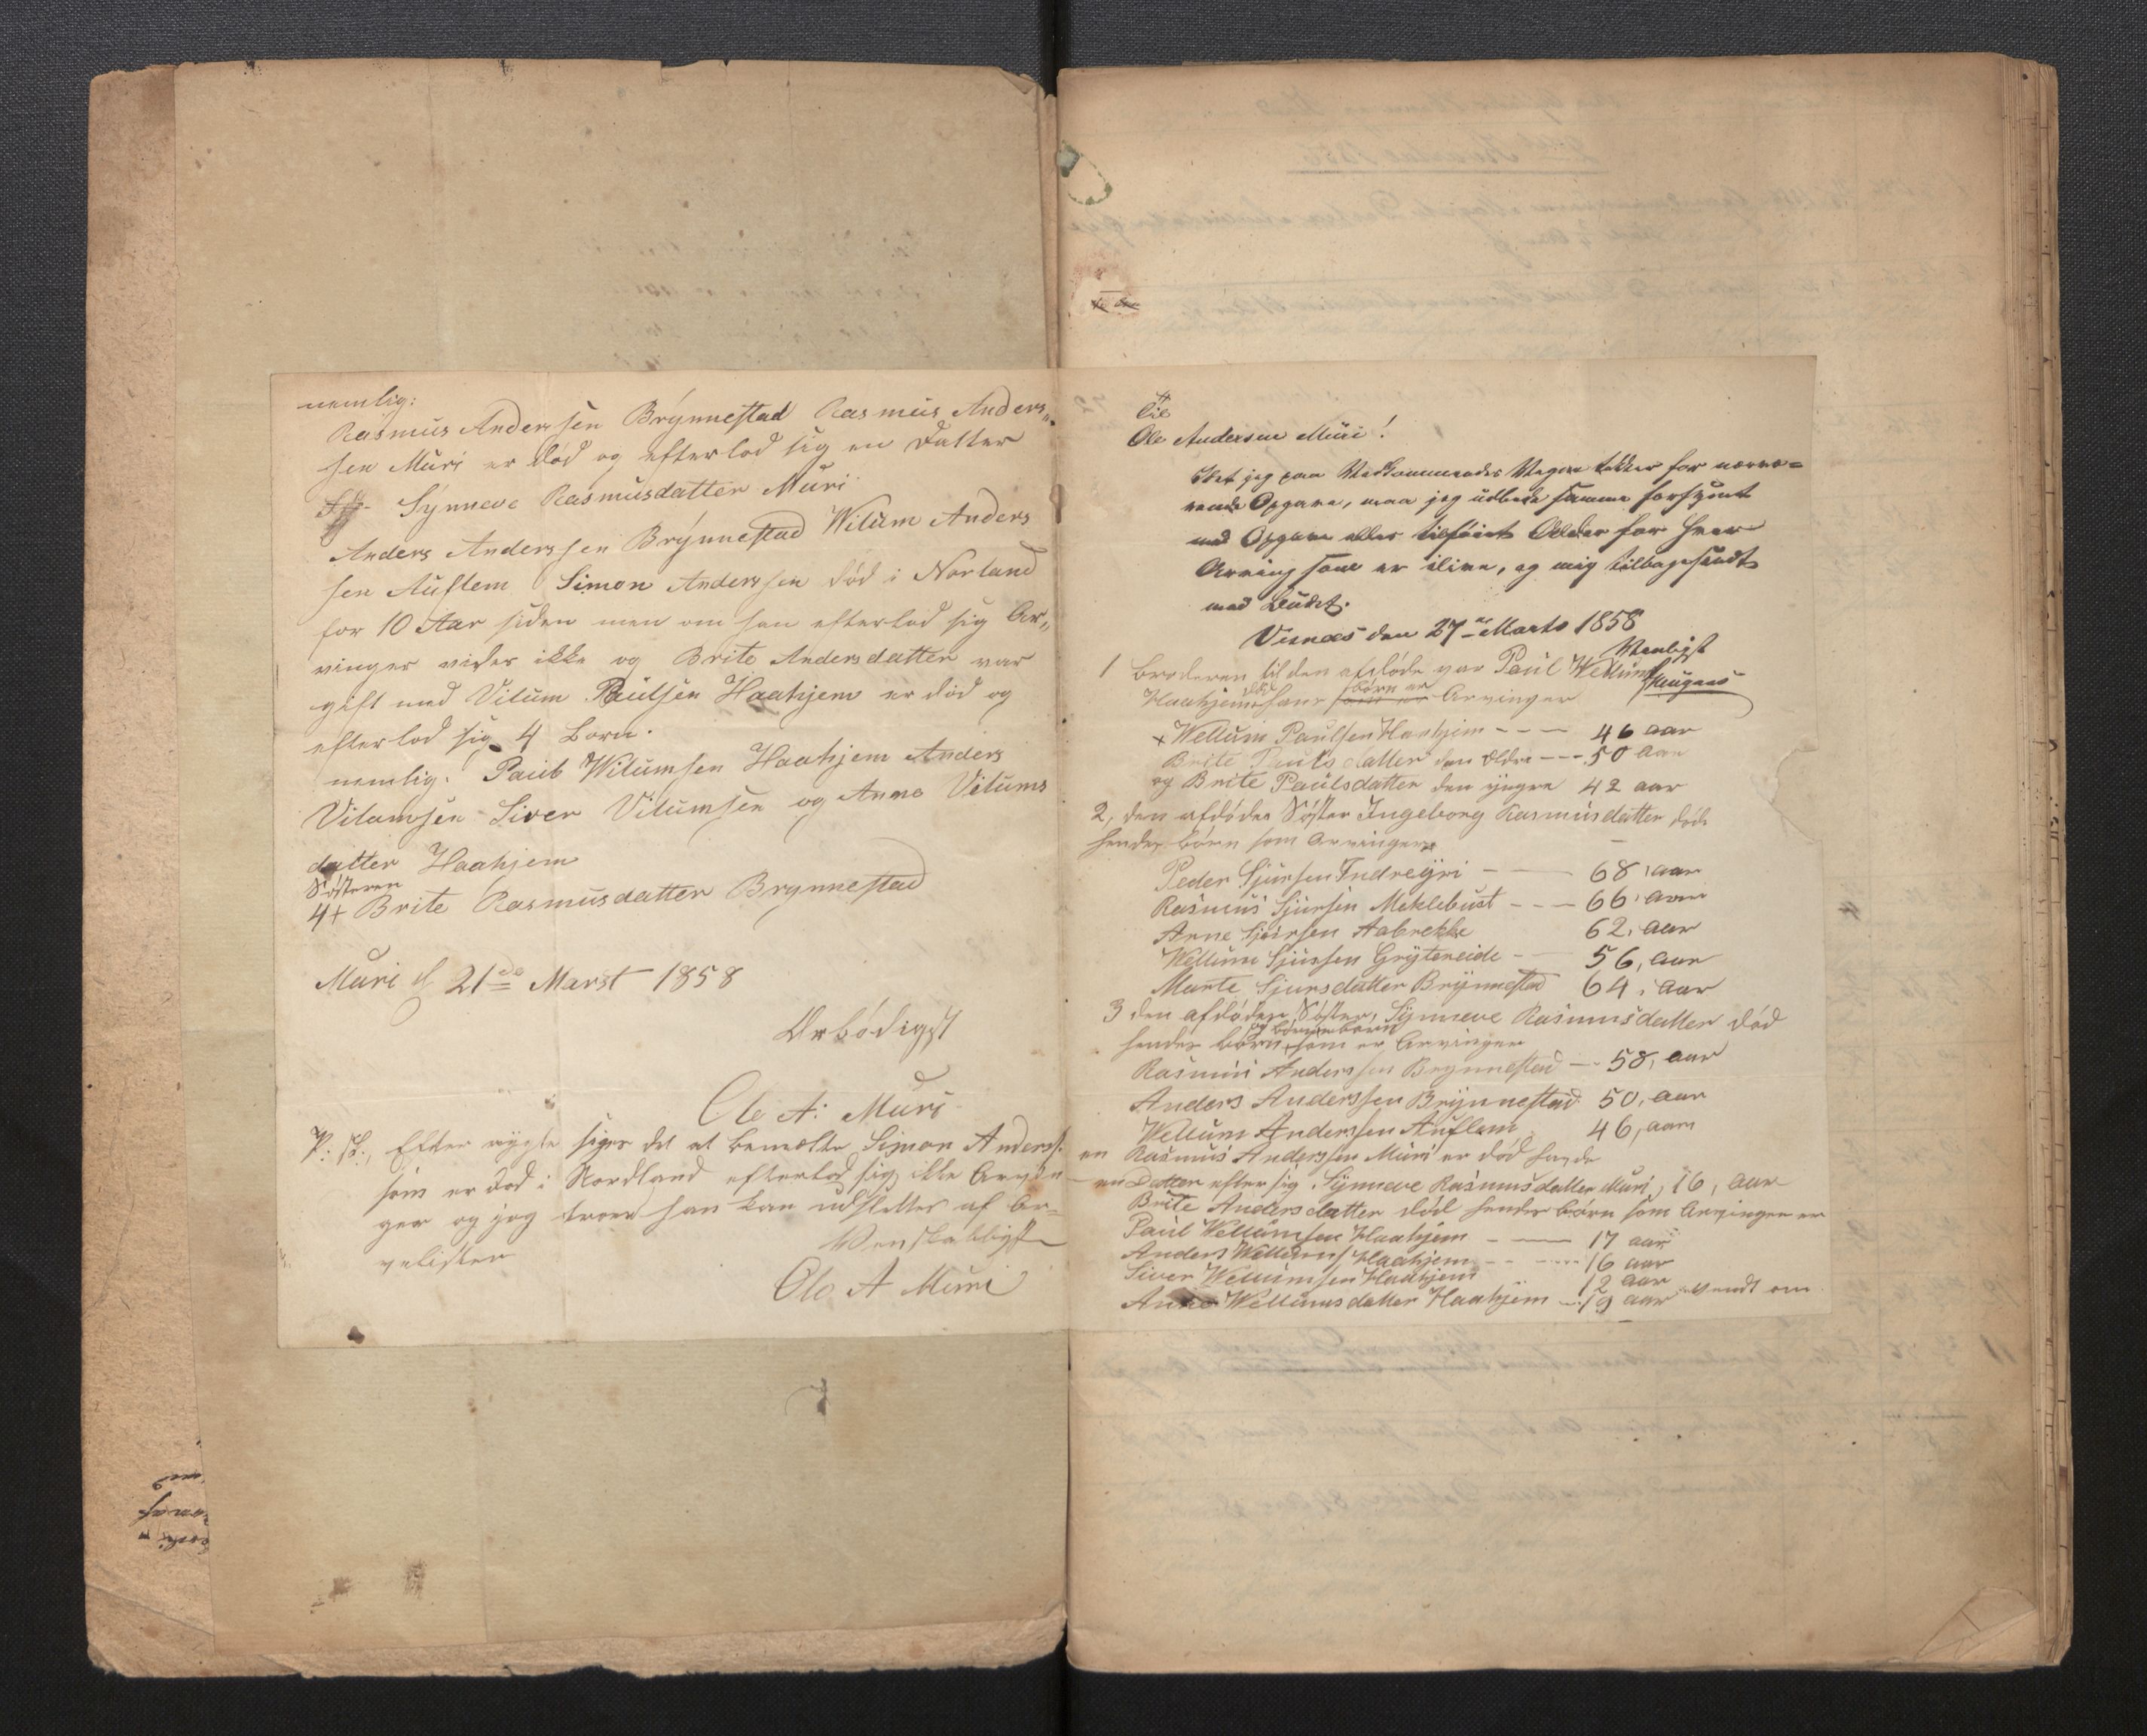 nemlig:
Rasmus Anderssen Brynnestad Rasmus Anders„
sen Muri er død og efterlod sig en Datter
Synneve Rasmusdatter Muri
Anders Anderssen Brynnestad Wilum Anders
sen Auflem Simon Anderssen død i Norland
for 10 Aar siden men om han efterlod sig Ar„
vinger vides ikke og Brite Andersdatter var
gift med Vilum Paulsen Haahjem er død og
efterlod sig 4 Born.
nemlig: Paul Wilumsen Haahjem Anders
Vilumsen Siver Vilumsen og Anna Vilums
datter Haahjem
Søsteren
4+ Brite Rasmusdatter Brynnestad
Muri d 21de Marst 1858
Ærbødigst
Ole A: Muri
P: S:, Efter rygte siges det at bemelte Simon Anderss.
som er død i Nordland efterlod sig ikke Arvin
ger og jeg troer han kan udslettes af Ar=
velisten
Venskabligst
Ole A Muri
Til
Ole Andersen Muri!
Idet jeg paa Vedkommendes Vegne takker for nærvæ=
rende Opgave, maa jeg udbede samme forsynet
med Opgave eller tilføiet Alder for hver
Arving som er ilive, og mig tilbagesendt
med Budet.
Visnæs den 27de Marts 1858
Venligst
1 Broderen til den afdøde var Paul Wellums
Haahjem død hans børn er Arvinger
+ Wellum Paulsen Haahjem --- 46 aar
Brite Paulsdatter den Eldre --- 50 Aar
og Brite Paulsdatter den yngre 42 aar
2, den afdødes Søster Ingeborg Rasmusdatter død
hendes børn som Arvinger
Peder Sjursen Indreyri - — 68, aar
Rasmus Sjursen Meklebust - - - 66, aar
Arne Sjursen Aabrekke 62, aar
Wellum Sjursen Gryteneide - 56, aar
Marte Sjursdatter Brynnestad 64, aar
3 den afdødes Søster, Synneve Rasmusdatter død
og børnebørn
hendes børn, som er Arvinger
Rasmus Anderssen Brynnestad -- 58, aar
Anders Anderssen Brynnestad 50, aar
Wellum Anderssen Auflem 46, aar
en Rasmus Anderssen Muri er død havde
en Datter efter sig, Synneve Rasmusdatter Muri, 16, aar
Brite Andersdatter død hendes børn som Arvinger er
Paul Wellumsen Haahjem - — 17 aar
Anders Wellums Haahjem - - ---- 16 aar
Siver Wellumsen Haahjem 12 aar
Anna Wellumsdatter Haahjem -- 19 aar vendt om